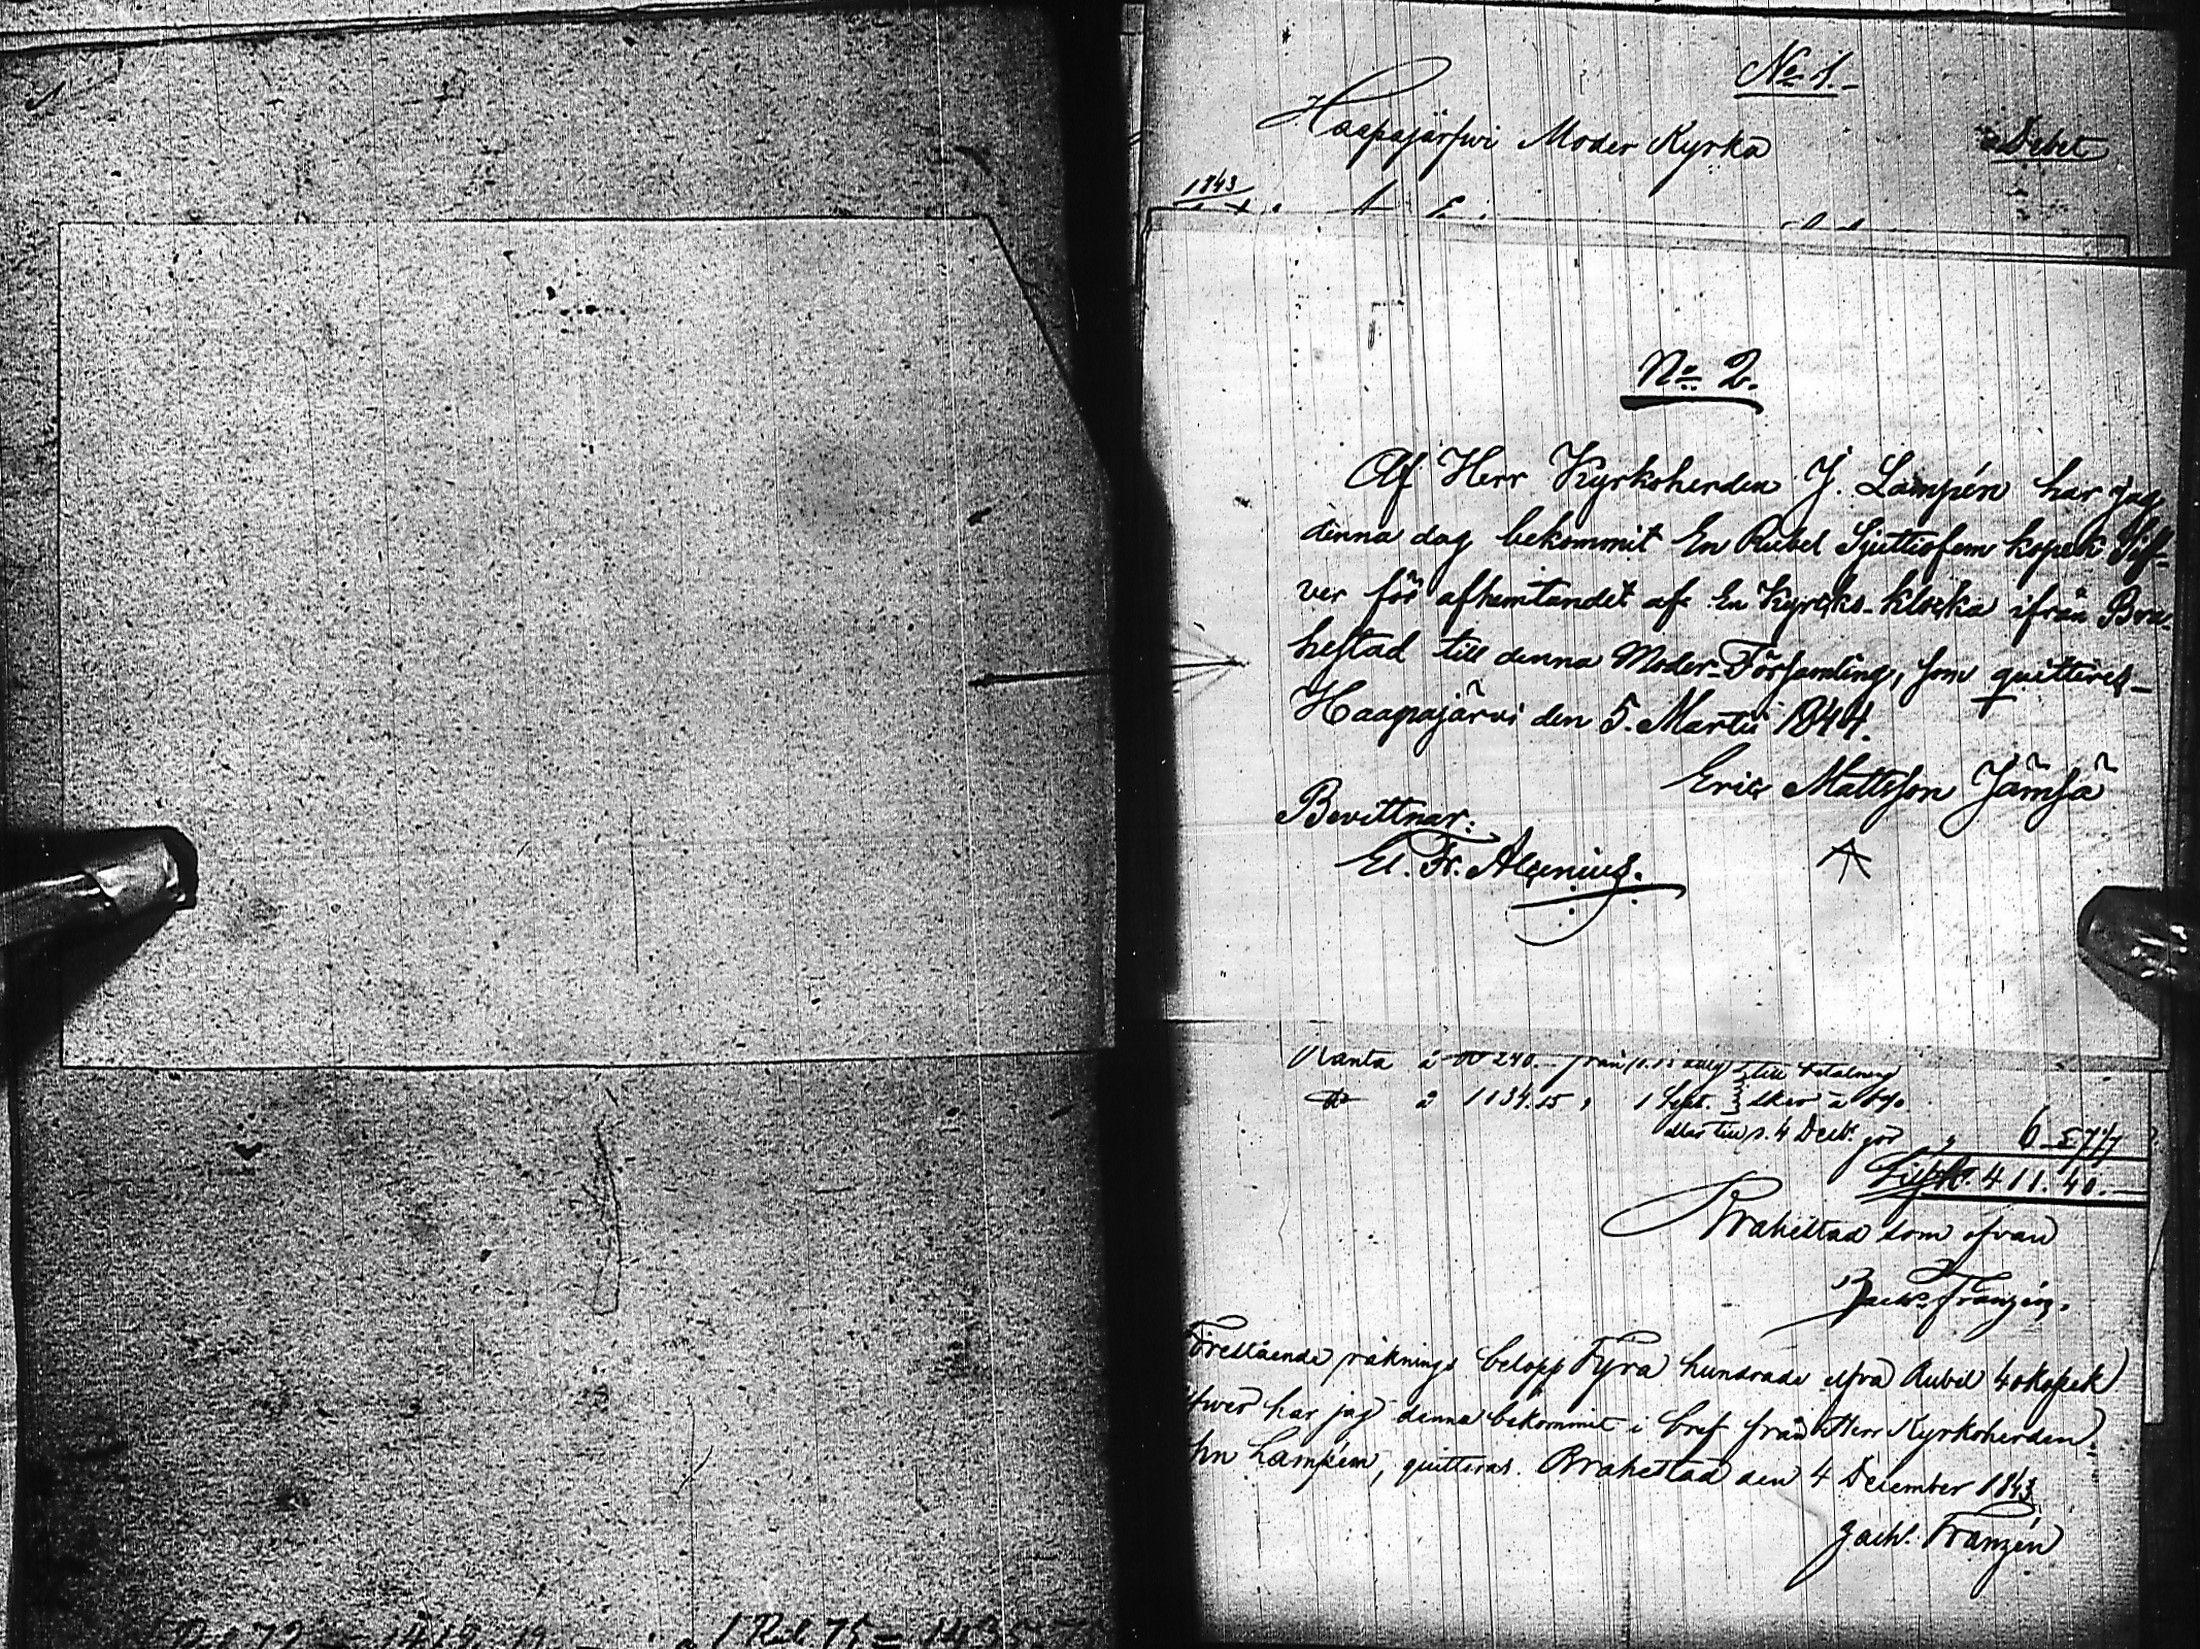 No 1.
Haapajärfwi Moder Kyrka Debet
1843
No 2.
Af Herr Kyrkoherden J. Lampén har jag
denna dag bekommit En Rubel Sjuttiofem kopek Silf-
ver för afhemtandet af En Kyrcks-klocka ifrån Bra-
hestad till denna Moder-Församling, som quitteres
Haapajärvi den 5. Martii 1844.
Eric Mattsson Jämsä
Bevittnar:
El. Fr. Alcenius.
Ranta à 240. från
à 1134.15, 1 Sept. sker à 6%
4 Decbr gör 6
411.40.
Brahestad som ofvan
Zachs. Franzén.
Förestående räknings belopp Fyra hundrade elfva Rubel 40 kopek
har jag denna bekommit i bref från Herr Kyrkoherden
Lampén, quitteras. Brahestad den 4 December 1843
Zachs. Franzén